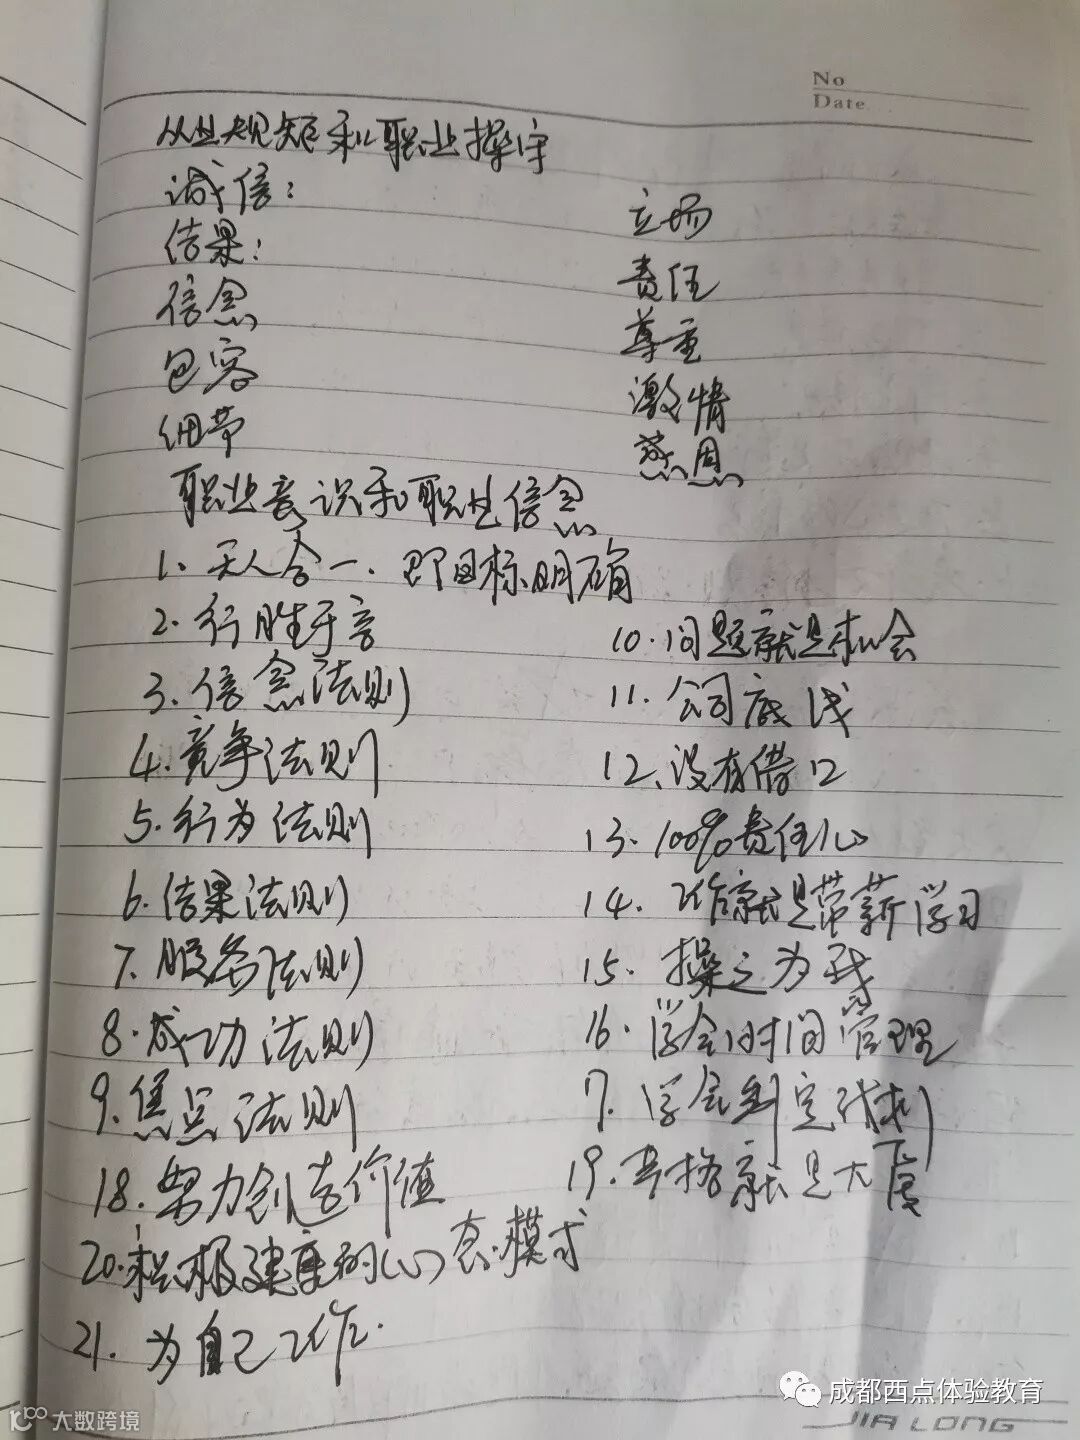 No
Date
从业规矩和职业操守
诚信: 立场
结果: 责任
信念 尊重
包容 激情
佣带 感恩
职业意识和职业信念
1、天人合一、即目标明确
2.行胜于言 10.问题就是机会
3.信念法则 11.公司底线
4.竞争法则 12、没有借口
5.行为法则 13.100%责任心
6.结果法则 14.工作就是带薪学习
7.服务法则 15.操之为我
8.成功法则 16.学会时间管理
9.焦点法则 17.学会制定计划
18.努力创造价值 19.本格就是大厦
20.积极健康的心态模式
21.为自己工作.
成都西点体验教育
大数跨境
JIA LONG